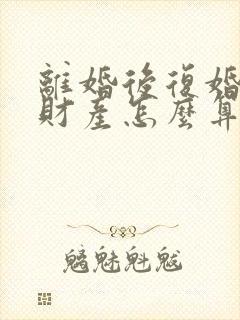 離婚後復婚
財產怎麼算
魑魅魁魃